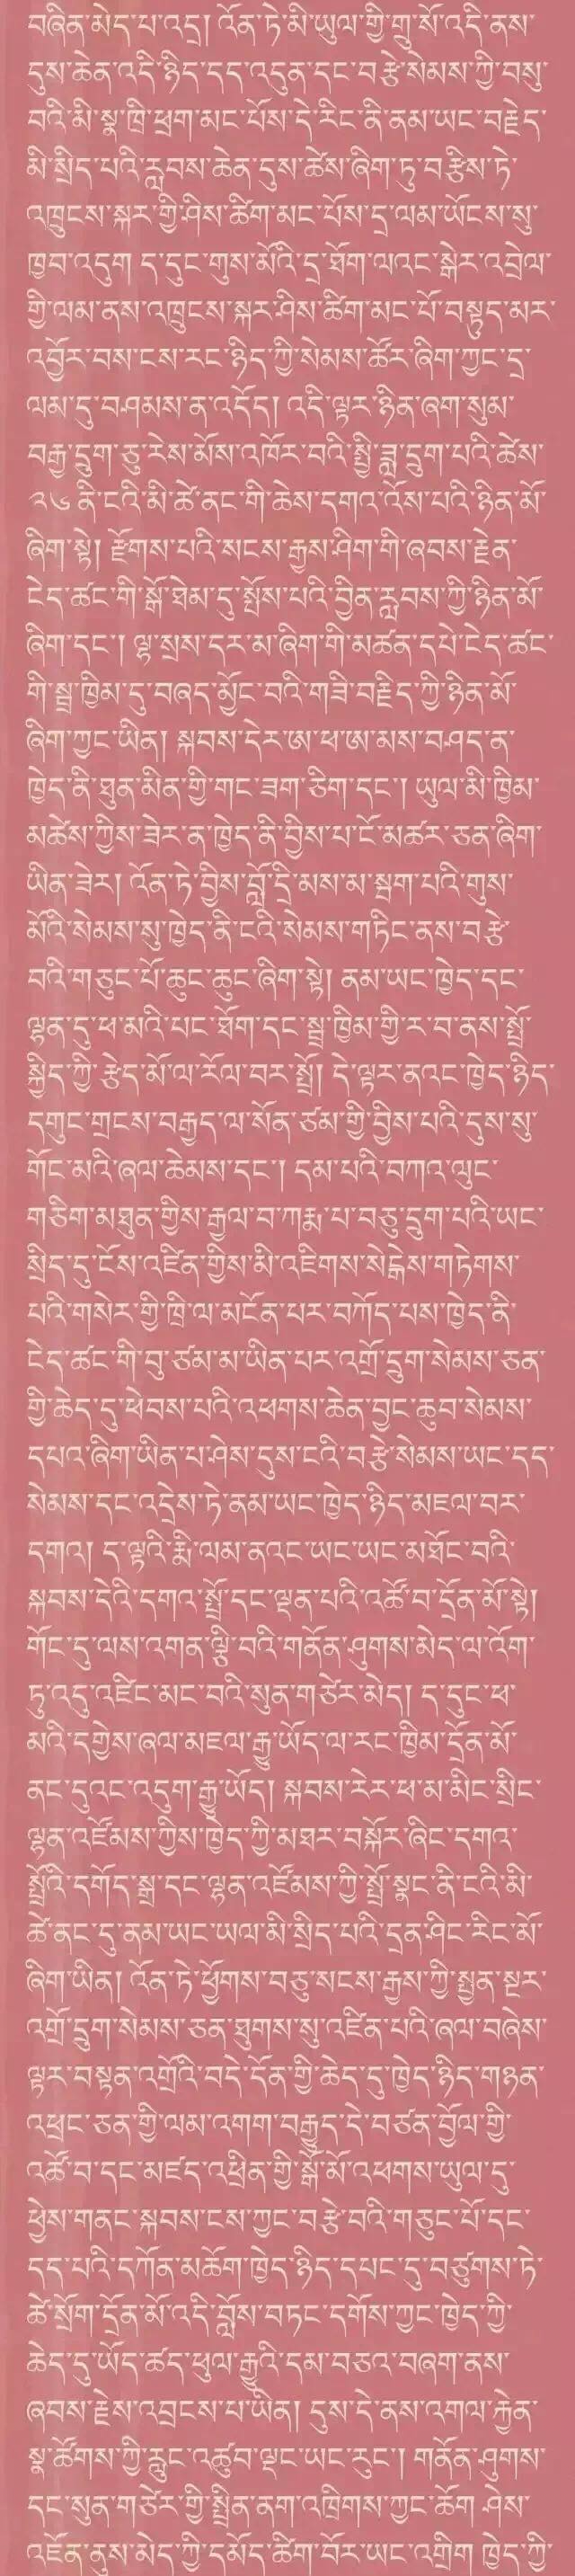 བཞིན་མེད་པ་འདྲ། འོན་ཏེ་མི་ཡུལ་གྱི་གྲུ་སོ་འདི་ནས་
དུས་ཆེན་འདི་ཉིད་དད་འདུན་དང་བརྩེ་སེམས་ཀྱི་བསུ་
བའི་མི་སྣ་ཁྲི་ཕྲག་མང་པོས་དེ་རིང་ནི་ནམ་ཡང་བརྗེད་
མི་སྲིད་པའི་རླབས་ཆེན་དུས་ཚེས་ཞིག་ཏུ་བརྩིས་ཏེ་
འཁྲུངས་སྐར་གྱི་ཤིས་ཚིག་མང་པོས་དྲ་ལམ་ཡོངས་སུ་
ཁྱབ་འདུག ད་དུང་གུས་མོའི་དྲ་ཐོག་ལའང་སྒེར་འབྲེལ་
གྱི་ལམ་ནས་འཁྲུངས་སྐར་ཤིས་ཚིག་མང་པོ་བསྟུད་མར་
འབྱོར་བས་ངས་རང་ཉིད་ཀྱི་སེམས་ཚོར་ཞིག་ཀྱང་དྲ་
ལམ་དུ་བཤམས་ན་འདོད། འདི་ལྟར་ཉིན་ཞག་སུམ་
བརྒྱ་དྲུག་ཅུ་རེས་མོས་འཁོར་བའི་སྤྱི་ཟླ་དྲུག་པའི་ཚེས་
༢༦ ནི་ངའི་མི་ཚེ་ནང་གི་ཆེས་དགའ་འོས་པའི་ཉིན་མོ་
ཞིག་སྟེ། རྫོགས་པའི་སངས་རྒྱས་ཤིག་གི་ཞབས་རྗེན་
ངེད་ཚང་གི་སྒོ་ཐེམ་དུ་སྤོས་པའི་བྱིན་རླབས་ཀྱི་ཉིན་མོ་
ཞིག་དང་། ལྷ་སྲས་དར་མ་ཞིག་གི་མཚན་དཔེ་ངེད་ཚང་
གི་སྦྲ་ཁྱིམ་དུ་བཞད་མྱོང་བའི་གཟི་བརྗིད་ཀྱི་ཉིན་མོ་
ཞིག་ཀྱང་ཡིན། སྐབས་དེར་ཨ་ཕ་ཨ་མས་བཤད་ན་
ཁྱེད་ནི་ཐུན་མིན་གྱི་གང་ཟག་ཅིག་དང་། ཡུལ་མི་ཁྱིམ་
མཚེས་ཀྱིས་ཟེར་ན་ཁྱེད་ནི་བྱིས་པ་ངོ་མཚར་ཅན་ཞིག་
ཡིན་ཟེར། འོན་ཏེ་བྱིས་བློ་དྲི་མས་མ་སྦག་པའི་གུས་
མོའི་སེམས་སུ་ཁྱེད་ནི་ངའི་སེམས་གཏིང་ནས་བརྩེ་
བའི་གཅུང་པོ་ཆུང་ཆུང་ཞིག་སྟེ། ནམ་ཡང་ཁྱེད་དང་
ལྷན་དུ་ཕ་མའི་པང་ཐོག་དང་སྦྲ་ཁྱིམ་གྱི་ར་བ་ནས་སྤྲོ་
སྐྱིད་ཀྱི་རྩེད་མོ་ལ་རོལ་བར་སྤྲོ། དེ་ལྟར་ནའང་ཁྱེད་ཉིད་
དགུང་གྲངས་བརྒྱད་ལ་སོན་ཙམ་གྱི་བྱིས་པའི་དུས་སུ་
གོང་མའི་ཞལ་ཆེམས་དང་། དམ་པའི་བཀའ་ལུང་
གཅིག་མཐུན་གྱིས་རྒྱལ་བ་ཀརྨ་པ་བཅུ་དྲུག་པའི་ཡང་
སྲིད་དུ་ངོས་འཛིན་གྱིས་མི་འཇིགས་སེངྒེས་བཏེགས་
པའི་གསེར་གྱི་ཁྲི་ལ་མངོན་པར་བཀོད་པས་ཁྱེད་ནི་
ངེད་ཚང་གི་བུ་ཙམ་མ་ཡིན་པར་འགྲོ་དྲུག་སེམས་ཅན་
གྱི་ཆེད་དུ་ཕེབས་པའི་འཕགས་ཆེན་བྱང་ཆུབ་སེམས་
དཔའ་ཞིག་ཡིན་པ་ཤེས་དུས་ངའི་བརྩེ་སེམས་ཡང་དད་
སེམས་དང་འདྲེས་ཏེ་ནམ་ཡང་ཁྱེད་ཉིད་མཇལ་བར་
དགའ། ད་ལྟའི་རྨི་ལམ་ནའང་ཡང་ཡང་མཐོང་བའི་
སྐབས་དེའི་དགའ་སྤྲོ་དང་ལྡན་པའི་འཚོ་བ་དྲོན་མོ་སྟེ།
གོང་དུ་ལས་འགན་ལྕི་བའི་གནོན་ཤུགས་མེད་ལ་འོག་
ཏུ་འདུ་འཛིང་མང་བའི་སུན་གཙེར་མེད། ད་དུང་ཕ་
མའི་དགྱེས་ཞལ་མཇལ་རྒྱུ་ཡོད་ལ་རང་ཁྱིམ་དྲོན་མོ་
ནང་དུའང་འདུག་རྒྱུ་ཡོད། སྐབས་རེར་ཕ་མ་མིང་སྲིང་
ལྷན་འཛོམས་ཀྱིས་ཁྱེད་ཀྱི་མཐར་བསྐོར་ཞིང་དགའ་
སྤྲོའི་དགོད་སྒྲ་དང་ལྷན་འཛོམས་ཀྱི་སྤྲོ་སྣང་ནི་ངའི་མི་
ཚེ་ནང་དུ་ནམ་ཡང་ཡལ་མི་སྲིད་པའི་དྲན་ཤིང་རིང་མོ་
ཞིག་ཡིན། འོན་ཏེ་ཕྱོགས་བཅུ་སངས་རྒྱས་ཀྱི་སྤྱན་སྔར་
འགྲོ་དྲུག་སེམས་ཅན་ཐུགས་སུ་འཛིན་པའི་ཞལ་བཞེས་
ལྟར་བསྟན་འགྲོའི་བདེ་དོན་གྱི་ཆེད་དུ་ཁྱེད་ཉིད་གཉན་
འཕྲང་ཅན་གྱི་ལམ་འགག་བརྒྱུད་དེ་བཙན་བྱོལ་གྱི་
འཚོ་བ་དང་མཛད་འཕྲིན་གྱི་སྒོ་མོ་འཕགས་ཡུལ་དུ་
ཕྱེས་གནང་སྐབས་ངས་ཀྱང་བརྩེ་བའི་གཅུང་པོ་དང་
དད་པའི་དཀོན་མཆོག་ཁྱེད་ཉིད་དཔང་དུ་བཙུགས་ཏེ་
ཚེ་སྲོག་དྲོན་མོ་འདི་བློས་བཏང་དགོས་ཀྱང་ཁྱེད་ཀྱི་
ཆེད་དུ་ཡོད་ཚད་ཕུལ་རྒྱུའི་དམ་བཅའ་བཞག་ནས་
ཞབས་རྗེས་འབྲངས་པ་ཡིན། དུས་དེ་ནས་འགལ་རྐྱེན་
སྣ་ཚོགས་ཀྱི་རླུང་འཚུབ་ལྡང་ཡང་རུང་། གནོན་ཤུགས་
དང་སུན་གཙེར་གྱི་སྤྲིན་ནག་འཁྲིགས་ཀྱང་ཆོག ཤེས་
འཇོན་ནུས་མེད་ཀྱི་དམོད་ཚིག་བོར་ཡང་འགྲིག ཁྱེད་ཀྱི་